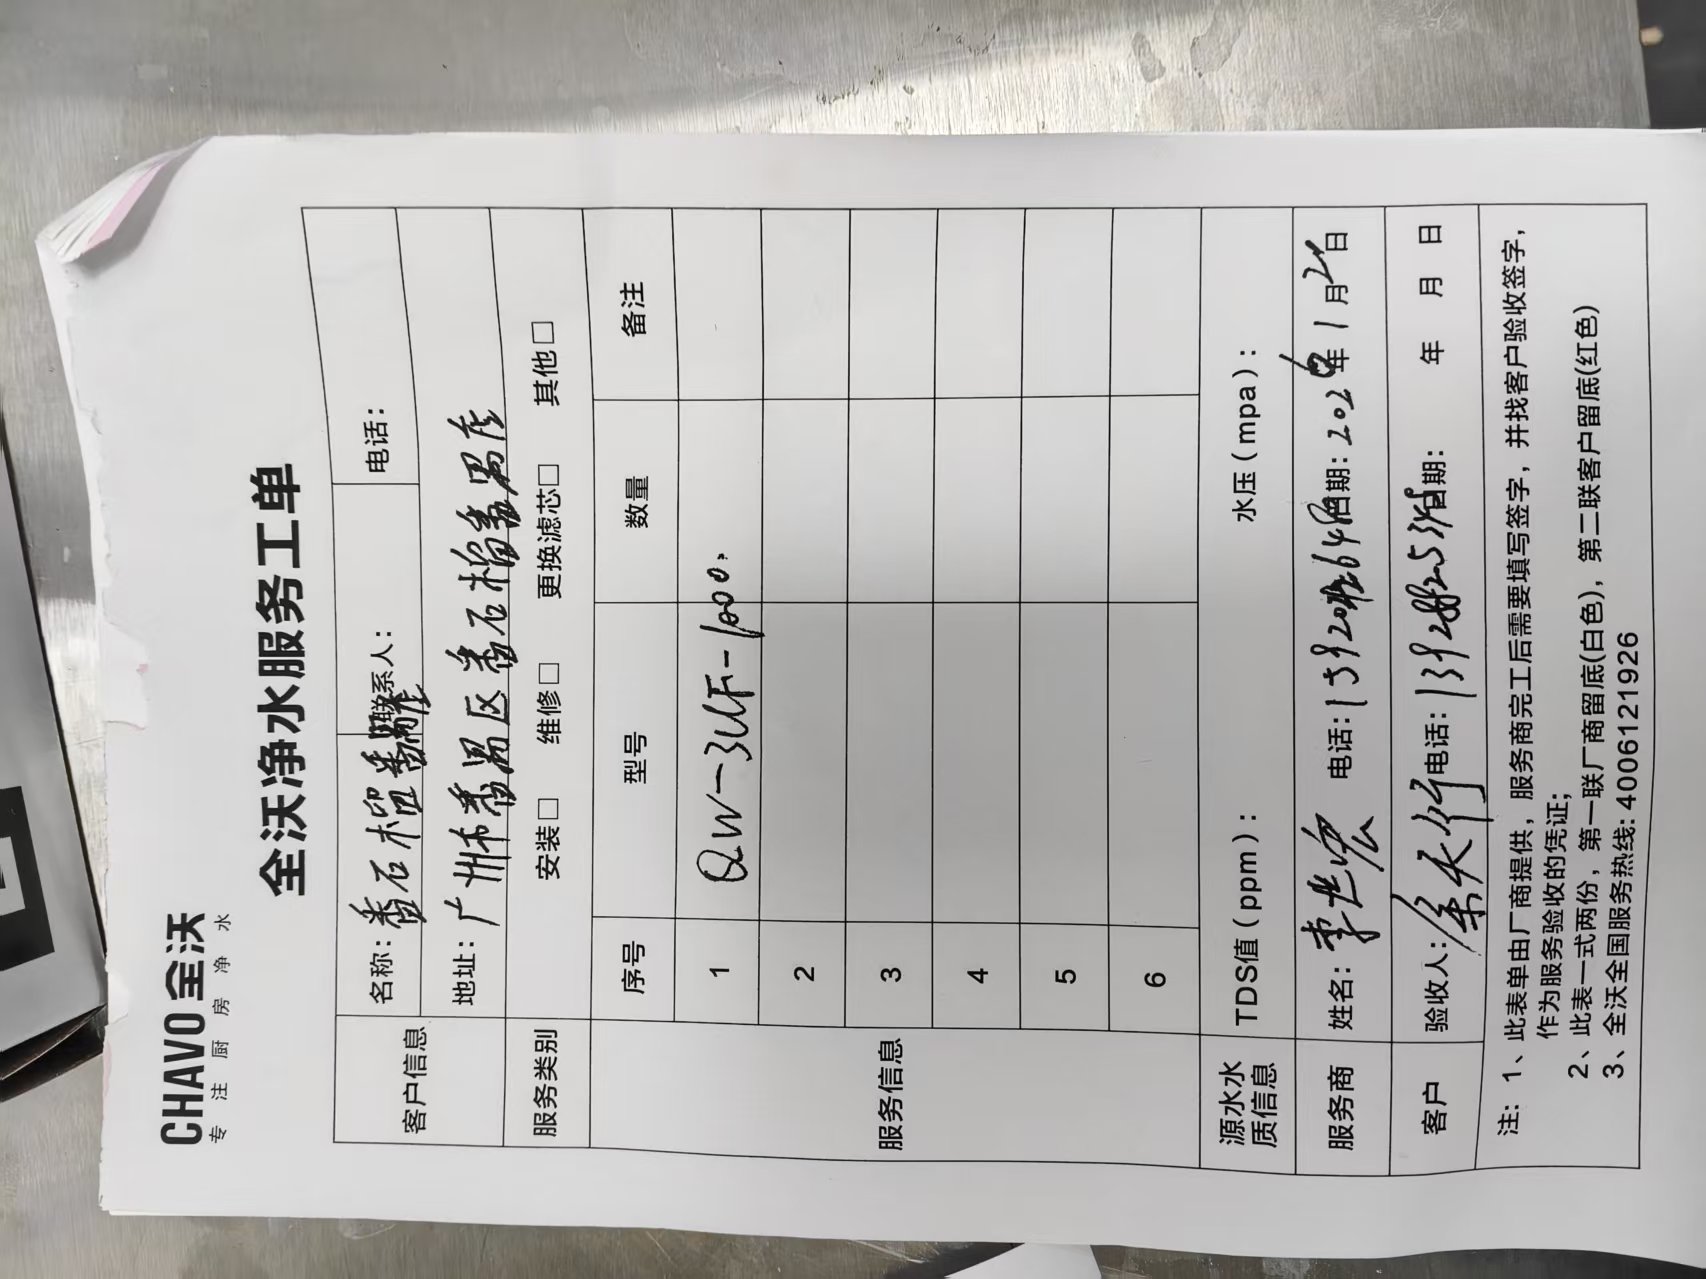 CHAVO 全沃
专注厨房净水
全沃净水服务工单
客户信息
名称: 番石榴番禺店 联系人: 电话:
地址: 广州市番禺区番石榴番禺店
服务类别 安装□ 维修□ 更换滤芯□ 其他□
服务信息
序号 型号 数量 备注
1 QW-3UF-1000.
2
3
4
5
6
源水水质信息 TDS值(ppm): 水压(mpa):
服务商 姓名: 李世宏 电话: 日期: 2026年1月21日
客户 验收人: 余天行 电话: 日期: 年 月 日
注: 1、此表单由厂商提供, 服务商完工后需要填写签字, 并找客户验收签字,
作为服务验收的凭证;
2、此表一式两份, 第一联厂商留底(白色), 第二联客户留底(红色)
3、全沃全国服务热线: 4006121926